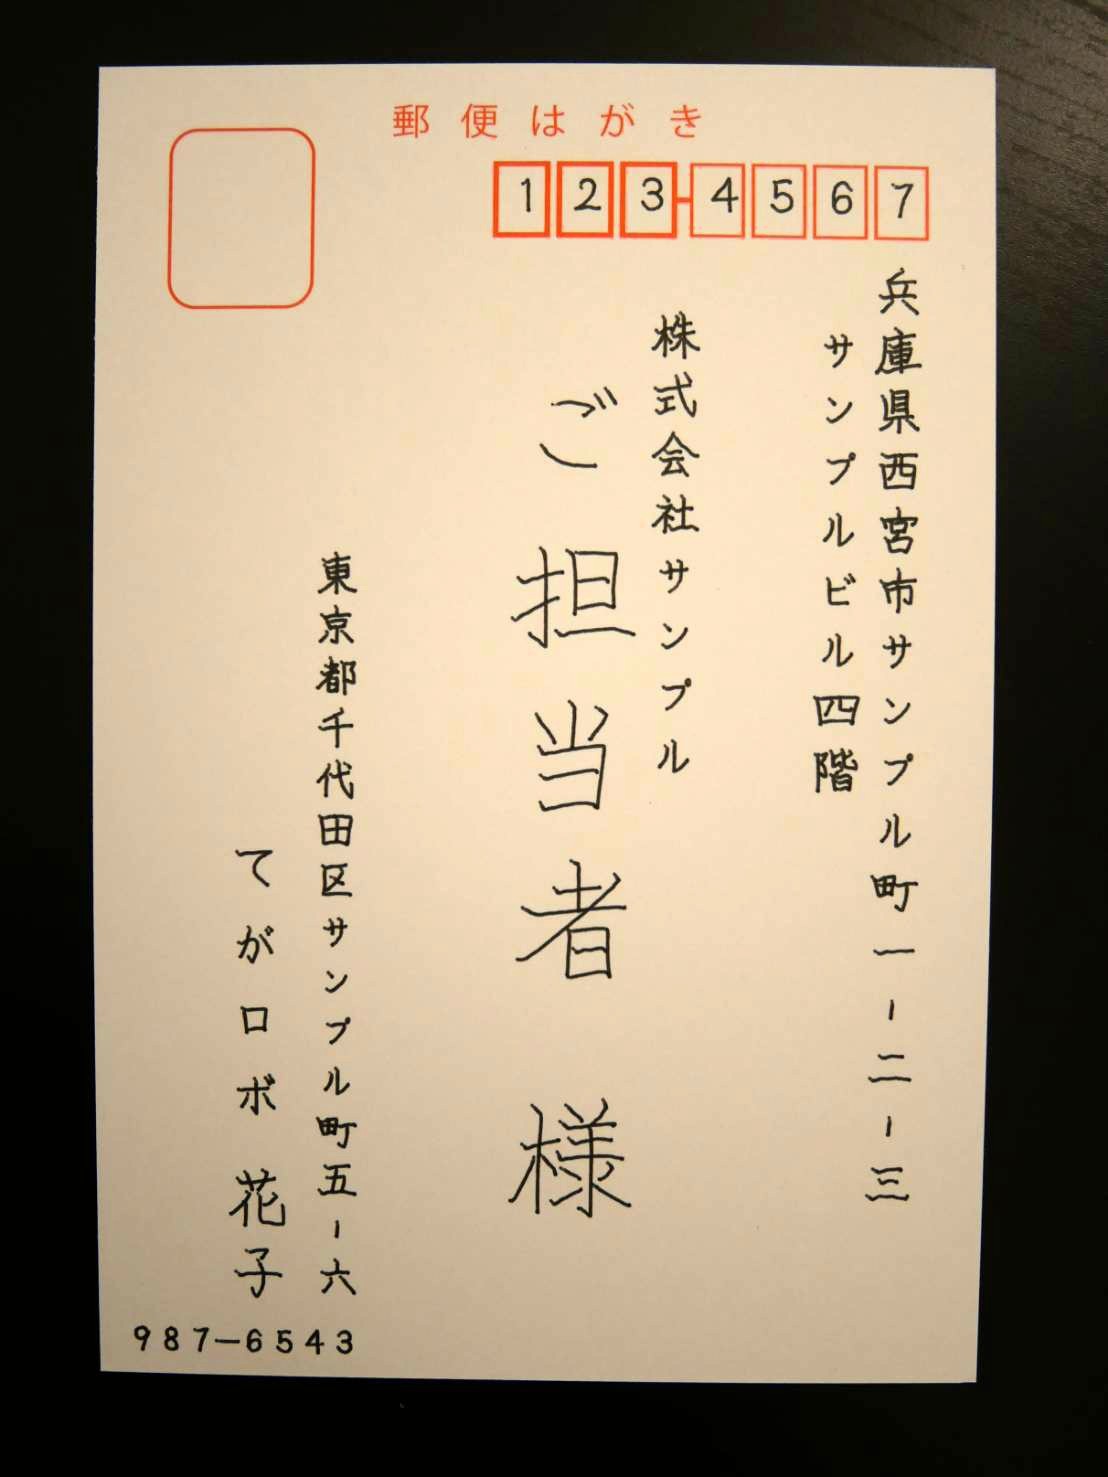 郵便はがき
123-4567
兵庫県西宮市サンプル町一-二-三
サンプルビル四階
株式会社サンプル
ご担当者 様
東京都千代田区サンプル町五-六
てがロボ 花子
987-6543